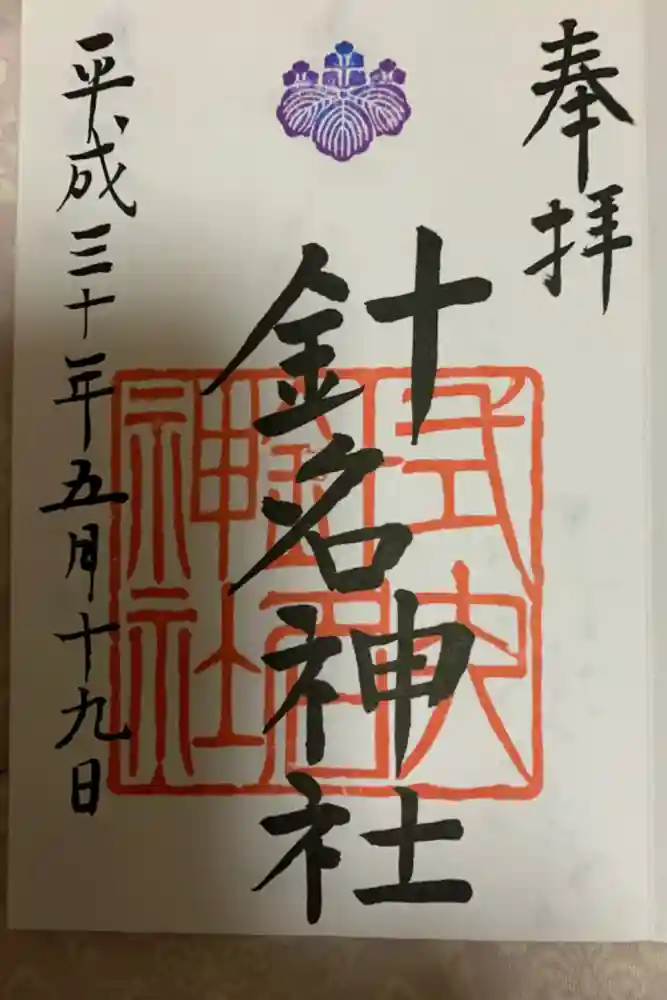 奉拝
針名神社
式内
針名
神社
平成三十年五月十九日